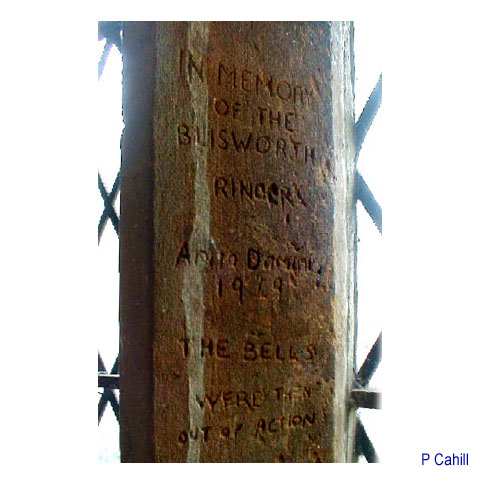 IN MEMORY
OF THE
BLISWORTH
RINGERS
Anno Domini
1919
THE BELLS
WERE THEN
OUT OF ACTION
P Cahill